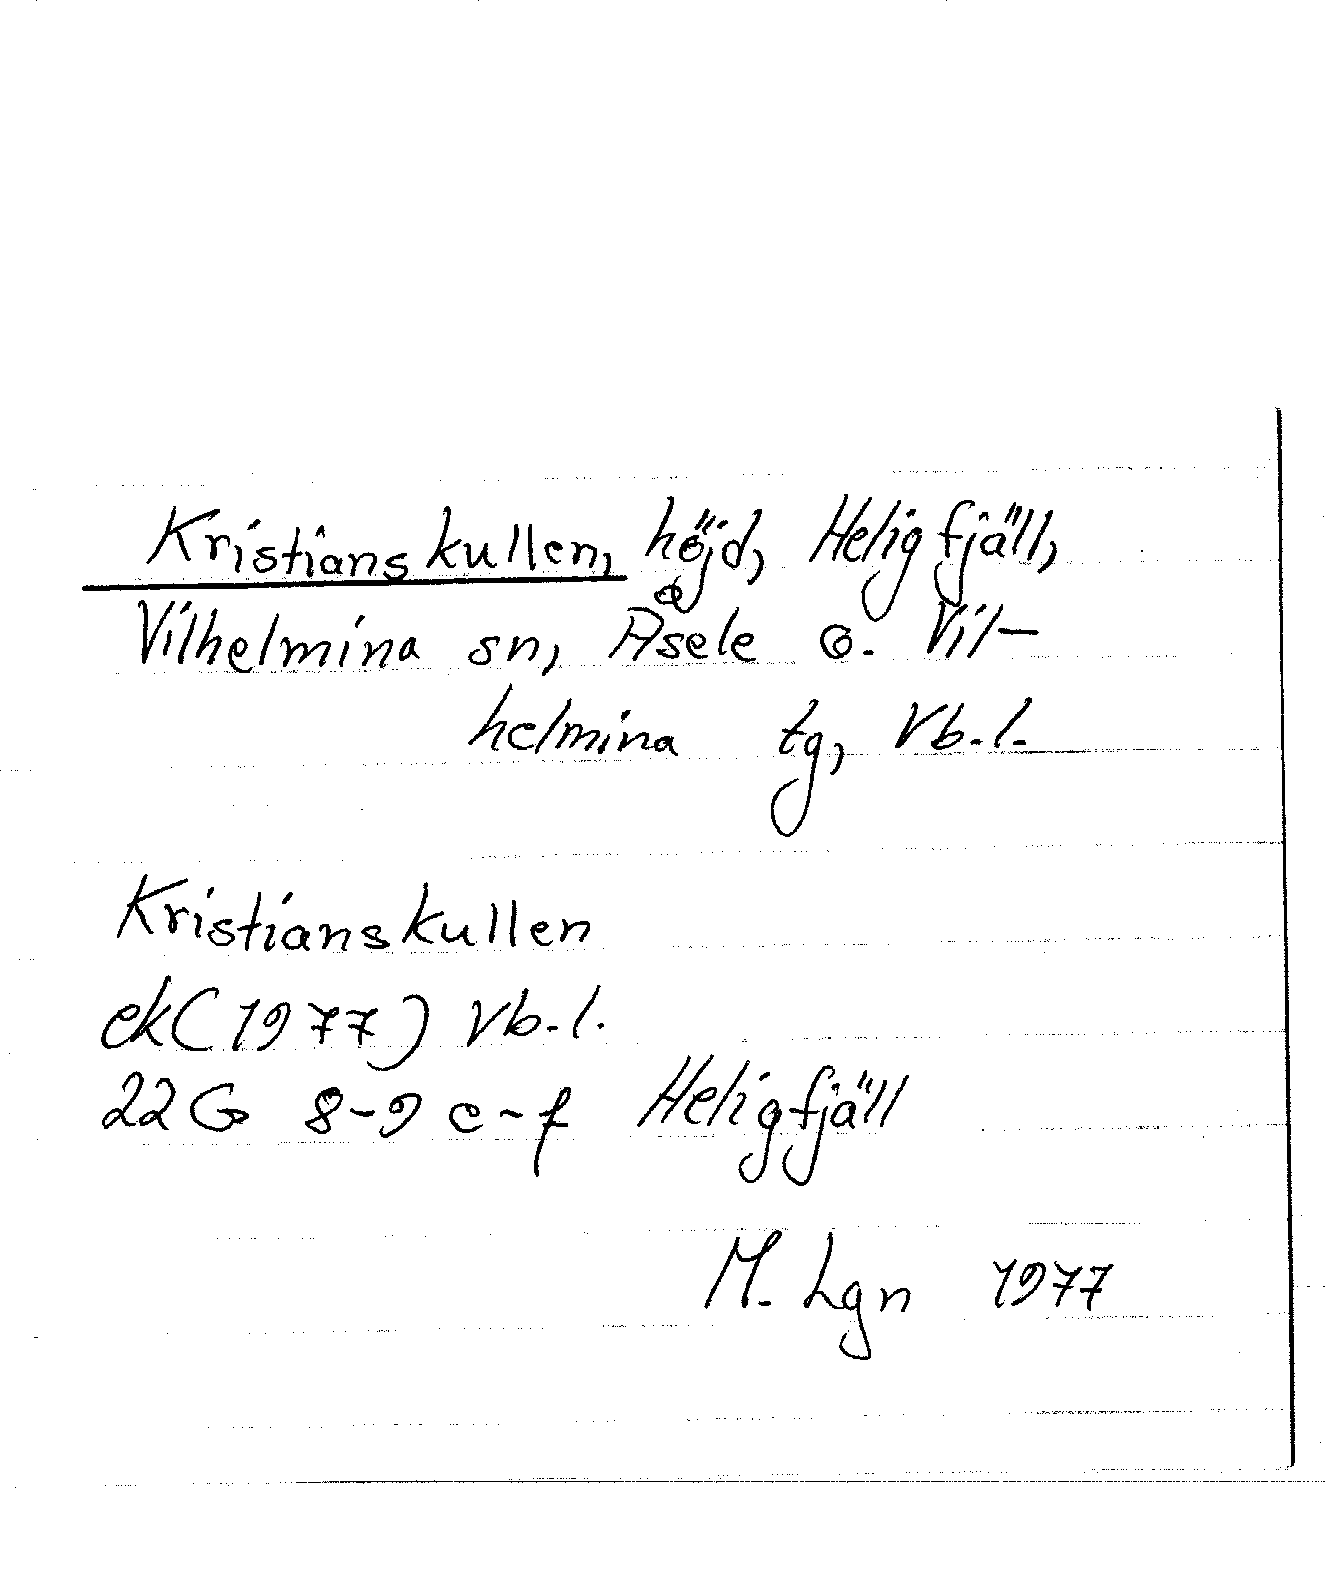 Kristianskullen, höjd, Heligfjäll,
Vilhelmina sn, Åsele o. Vil-
helmina tg, Vb.l.
Kristianskullen
ek (1977) Vb.l.
22 G 8-9 e-f Heligfjäll
M. Lgn 1977